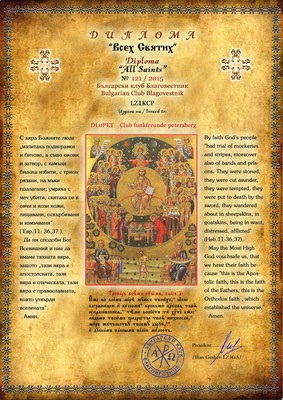 ДИПЛОМА
"Всех Святих"
Diploma
"All Saints"
№ 121 / 2015
Български клуб Благовестник
Bulgarian Club Blagovestnik
LZ1KCP
Издава на / Issued to:
DL0PET - Club funkfreunde petersberg
С вяра Божиите люде
"изпитаха подигравки
и бичове, а също окови
и затвор, с камъни
бидоха избити, с трион
рязани, на мъки
подлагани; умряха с
меч убити, скитаха се в
овчи и кози кожи,
лишавани, оскърбявани
и измъчвани"
( Евр.11: 36,37 ).
Да ни сподоби Бог
Всевишний и ние да
имаме тяхната вяра,
защото "тази вяра е
апостолската, тази
вяра е отеческата, тази
вяра е православната,
която утвърди
вселената".
Амин.
By faith God's people
"had trial of mockeries
and stripes, moreover
also of bands and pris-
ons. They were stoned,
they were cut asunder,
they were tempted, they
were put to death by the
sword, they wandered
about in sheepskins, in
goatskins, being in want,
distressed, afflicted"
(Heb.11:36,37).
May the Most High
God vouchsafe us, that
we have their faith be-
cause "this is the Apos-
tolic faith, this is the faith
of the Fathers, this is the
Orthodox faith , which
established the universe".
Amen.
President: